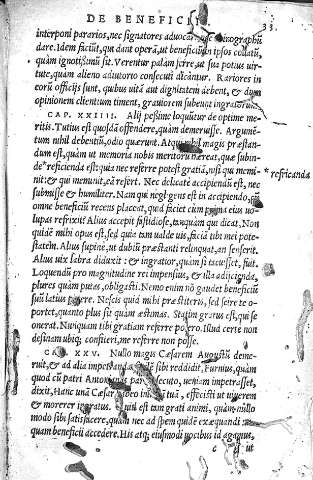 DE BENEFICII
33
interponi pararios, nec signatores advocari, nec chirographũ
dare. Idem faciũt, qui dant operã, ut beneficiũ in ipsos collatũ,
quàm ignotissimũ sit. Verentur palàm ferre, ut sua potius uir-
tute, quàm alieno adiutorio consecuti dicantur. Rariores in
eorũ officijs sunt, quibus uitã aut dignitatem debent, & dum
opinionem clientum timent, grauiorem subeunt ingratorum.
CAP. XXIIII. Alij peßime loquũtur de optime me-
ritis. Tutius est quosdã offendere, quàm demeruisse. Argumẽ-
tum nihil debentiũ, odio quærunt. Atqui nihil magis præstan-
dum est, quàm ut memoria nobis meritorũ hæreat, quæ subin-
de* reficienda est: quia nec referre potest gratiã, nisi qui memi-
nit: & qui meminit, eã refert. Nec delicate accipiendũ est, nec
submisse & humiliter. Nam qui negligens est in accipiendo, cũ
omne beneficiũ recens placeat, quid faciet cùm prima eius uo-
luptas refrixit? Alius accepit fastidiose, tanquam qui dicat, Non
quidẽ mihi opus est, sed quia tam ualde uis, faciã tibi mei pote-
statem. Alius supine, ut dubiũ præstanti relinquat, an senserit.
Alius uix labra diduxit: & ingratior, quàm si tacuisset, fuit.
Loquendũ pro magnitudine rei impensius, & illa adijcienda,
plures quàm putas, obligasti. Nemo enim nõ gaudet beneficiũ
suũ latius patere. Nescis quid mihi præstiteris, sed scire te o-
portet, quanto plus sit quàm æstimas. Statim gratus est, qui se
onerat. Nunquam tibi gratiam referre potero. Illud certe non
desinam ubiq; confiteri, me referre non posse.
CAP. XXV. Nullo magis Cæsarem Augustũ deme-
ruit, & ad alia impetranda facilẽ sibi reddidit, Furnius, quàm
quod cũ patri Antonianas partes secuto, ueniam impetrasset,
dixit, Hanc unã Cæsar habeo iniuriã tuã, effecisti ut uiuerem
& morerer ingratus. Quid est tam grati animi, quàm nullo
modo sibi satisfacere, quàm nec ad spem quidẽ exæquandi un-
quam beneficij accedere. His atq; eiusmodi uocibus id agamus,
ut
* reficanda